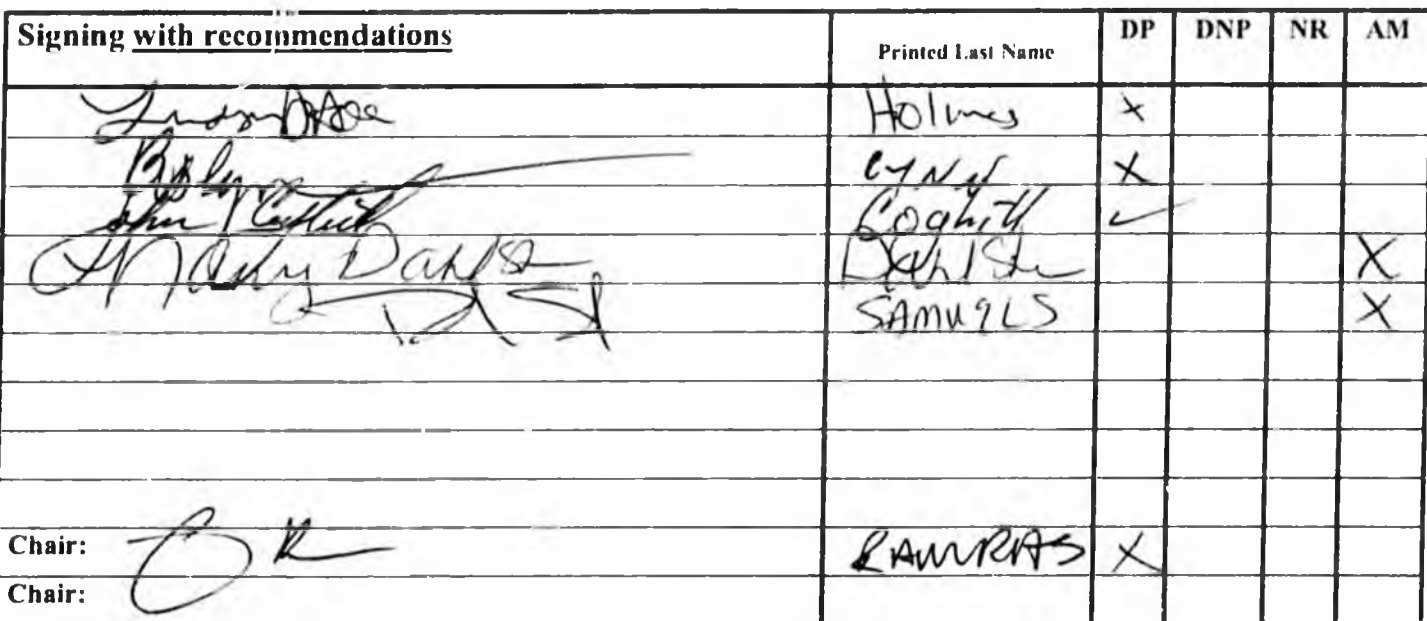 Signing with recommendations Printed Last Name DP DNP NR AM
Holmes X
LYNN X
John Coghill Coghill ✓
Nancy Dahlst Dahlst X
SAMUELS X
Chair: RAMRAS X
Chair: